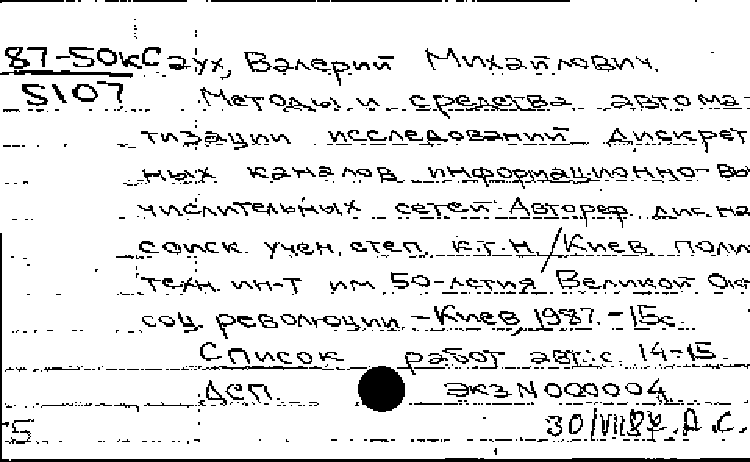 87-50к Саух, Валерий Михайлович.
5107 Методы и средства автома-
тизации исследований дискрет
ных каналов информационно-вы
числительных сетей: Автореф. дис. на
соиск. учен. степ. к.т.н. / Киев. поли
техн. ин-т им. 50-летия Великой Ок
соц. революции. - Киев, 1987. - 15с.
Список работ авт.: с. 14-15.
ДСП. экз N 000004
5 30/VII87. А.С.